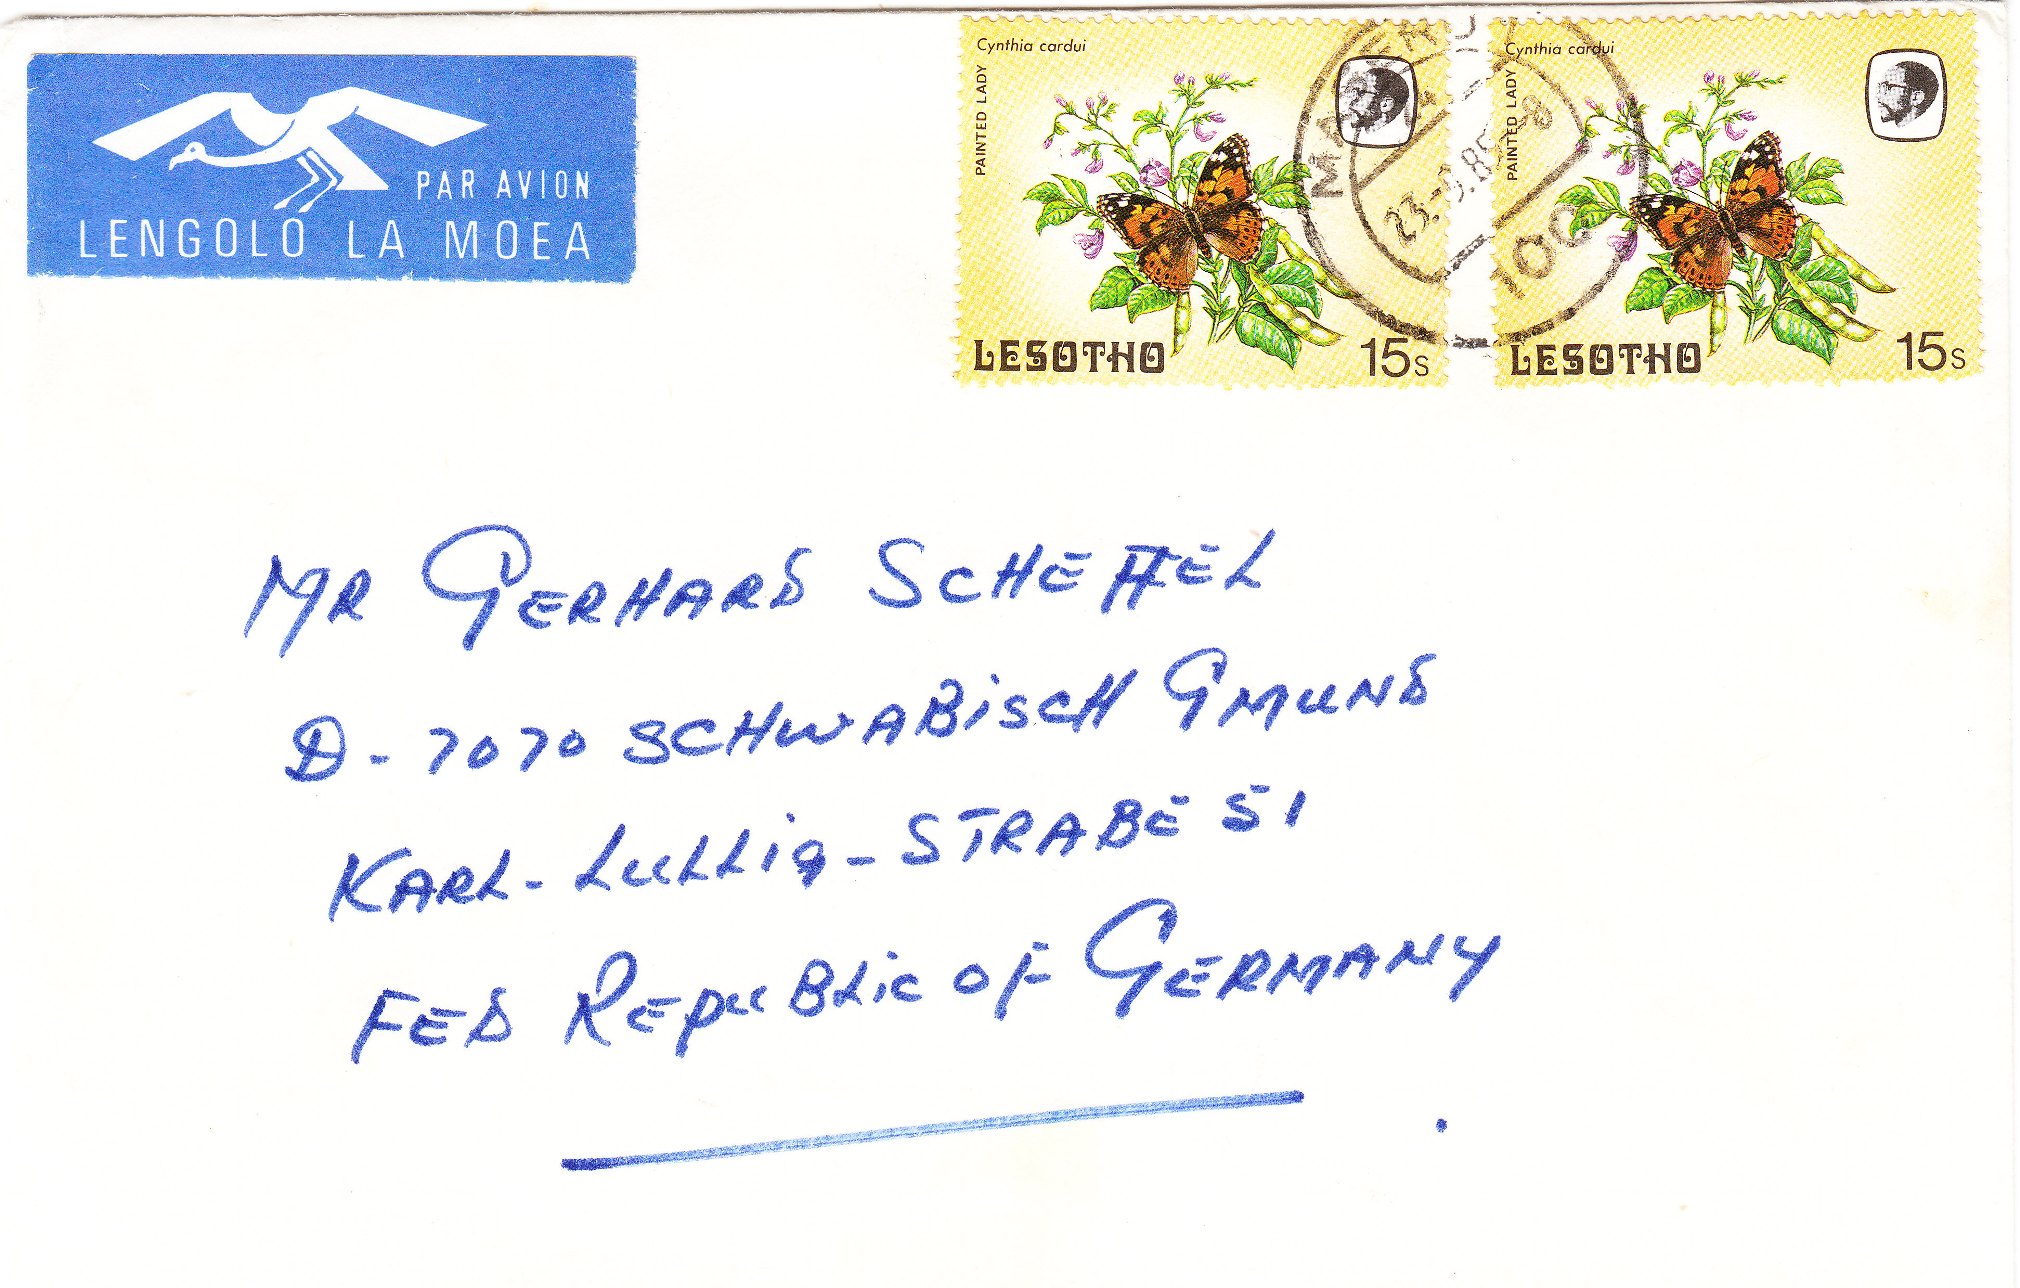 PAR AVION
LENGOLO LA MOEA
Cynthia cardui
PAINTED LADY
LESOTHO
15s
Cynthia cardui
PAINTED LADY
LESOTHO
15s
MASERU
100
MR GERHARD SCHEFFEL
D-7070 SCHWABISCH GMUND
KARL-LULLIG-STRABE 51
FED REPUBLIC OF GERMANY